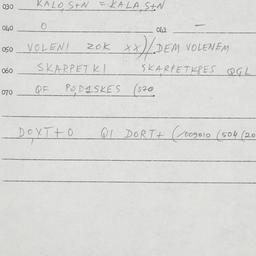 030 KALO,S+N = KALA,S+N
040 O 041 —
050 VOLENI ZOK XX)/DEM VOLENEM
060 SKARPETKI SKARPETKPES QGL
070 QF PO,D1SKES (570
DO,XT+O Q1 DORT+ (/009010 (504 (20